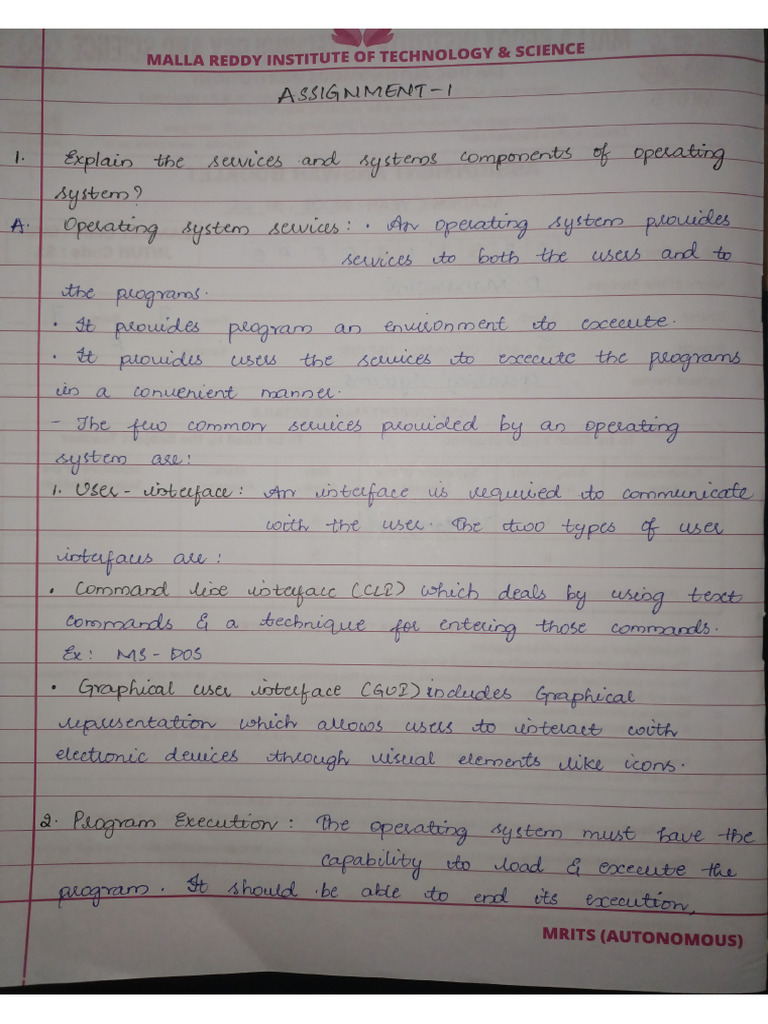 MALLA REDDY INSTITUTE OF TECHNOLOGY & SCIENCE
ASSIGNMENT-1
1. Explain the services and systems components of operating
system?
A. Operating system services: • An operating system provides
services to both the users and to
the programs.
• It provides program an environment to execute.
• It provides users the services to execute the programs
in a convenient manner.
- The few common services provided by an operating
system are:
1. User-interface: An interface is required to communicate
with the user. The two types of user
interfaces are:
• Command line interface (CLI) which deals by using text
commands & a technique for entering those commands.
Ex: MS-DOS
• Graphical user interface (GUI) includes Graphical
representation which allows users to interact with
electronic devices through visual elements like icons.
2. Program Execution: The operating system must have the
capability to load & execute the
program. It should be able to end its execution,
MRITS (AUTONOMOUS)